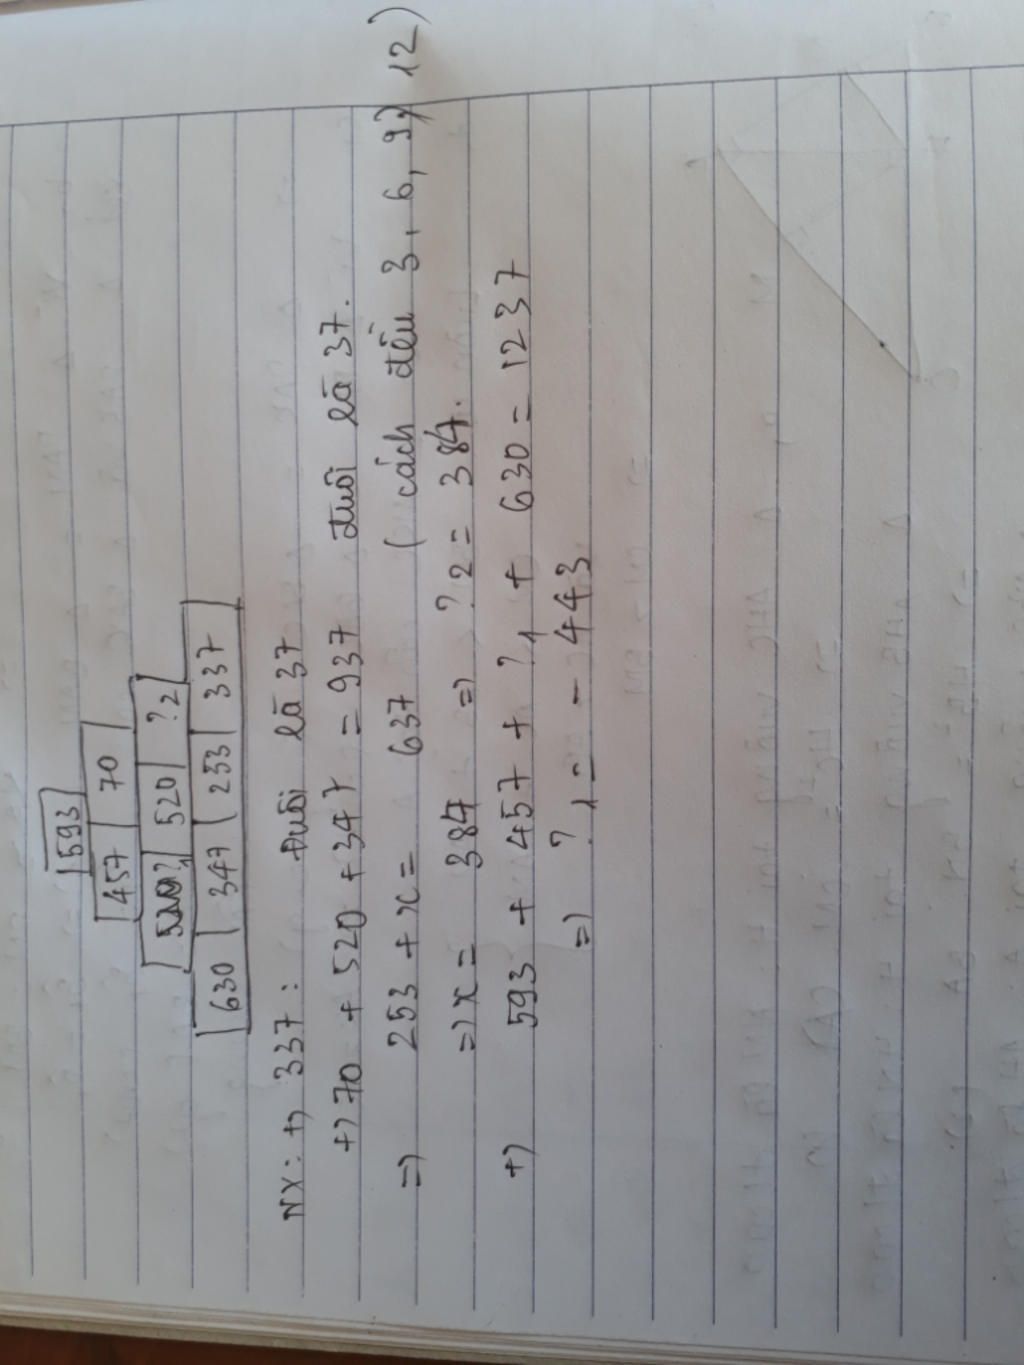 593
457 70
?1 520 ?2
630 347 253 337
NX: +) 337: Đuôi là 37
+) 70 + 520 + 347 = 937 đuôi là 37.
=) 253 + x = 637 ( cách đều 3, 6, 9, 12 )
=) x = 384 =) ?2 = 384.
+) 593 + 457 + ?1 + 630 = 1237
=) ?1 = - 443